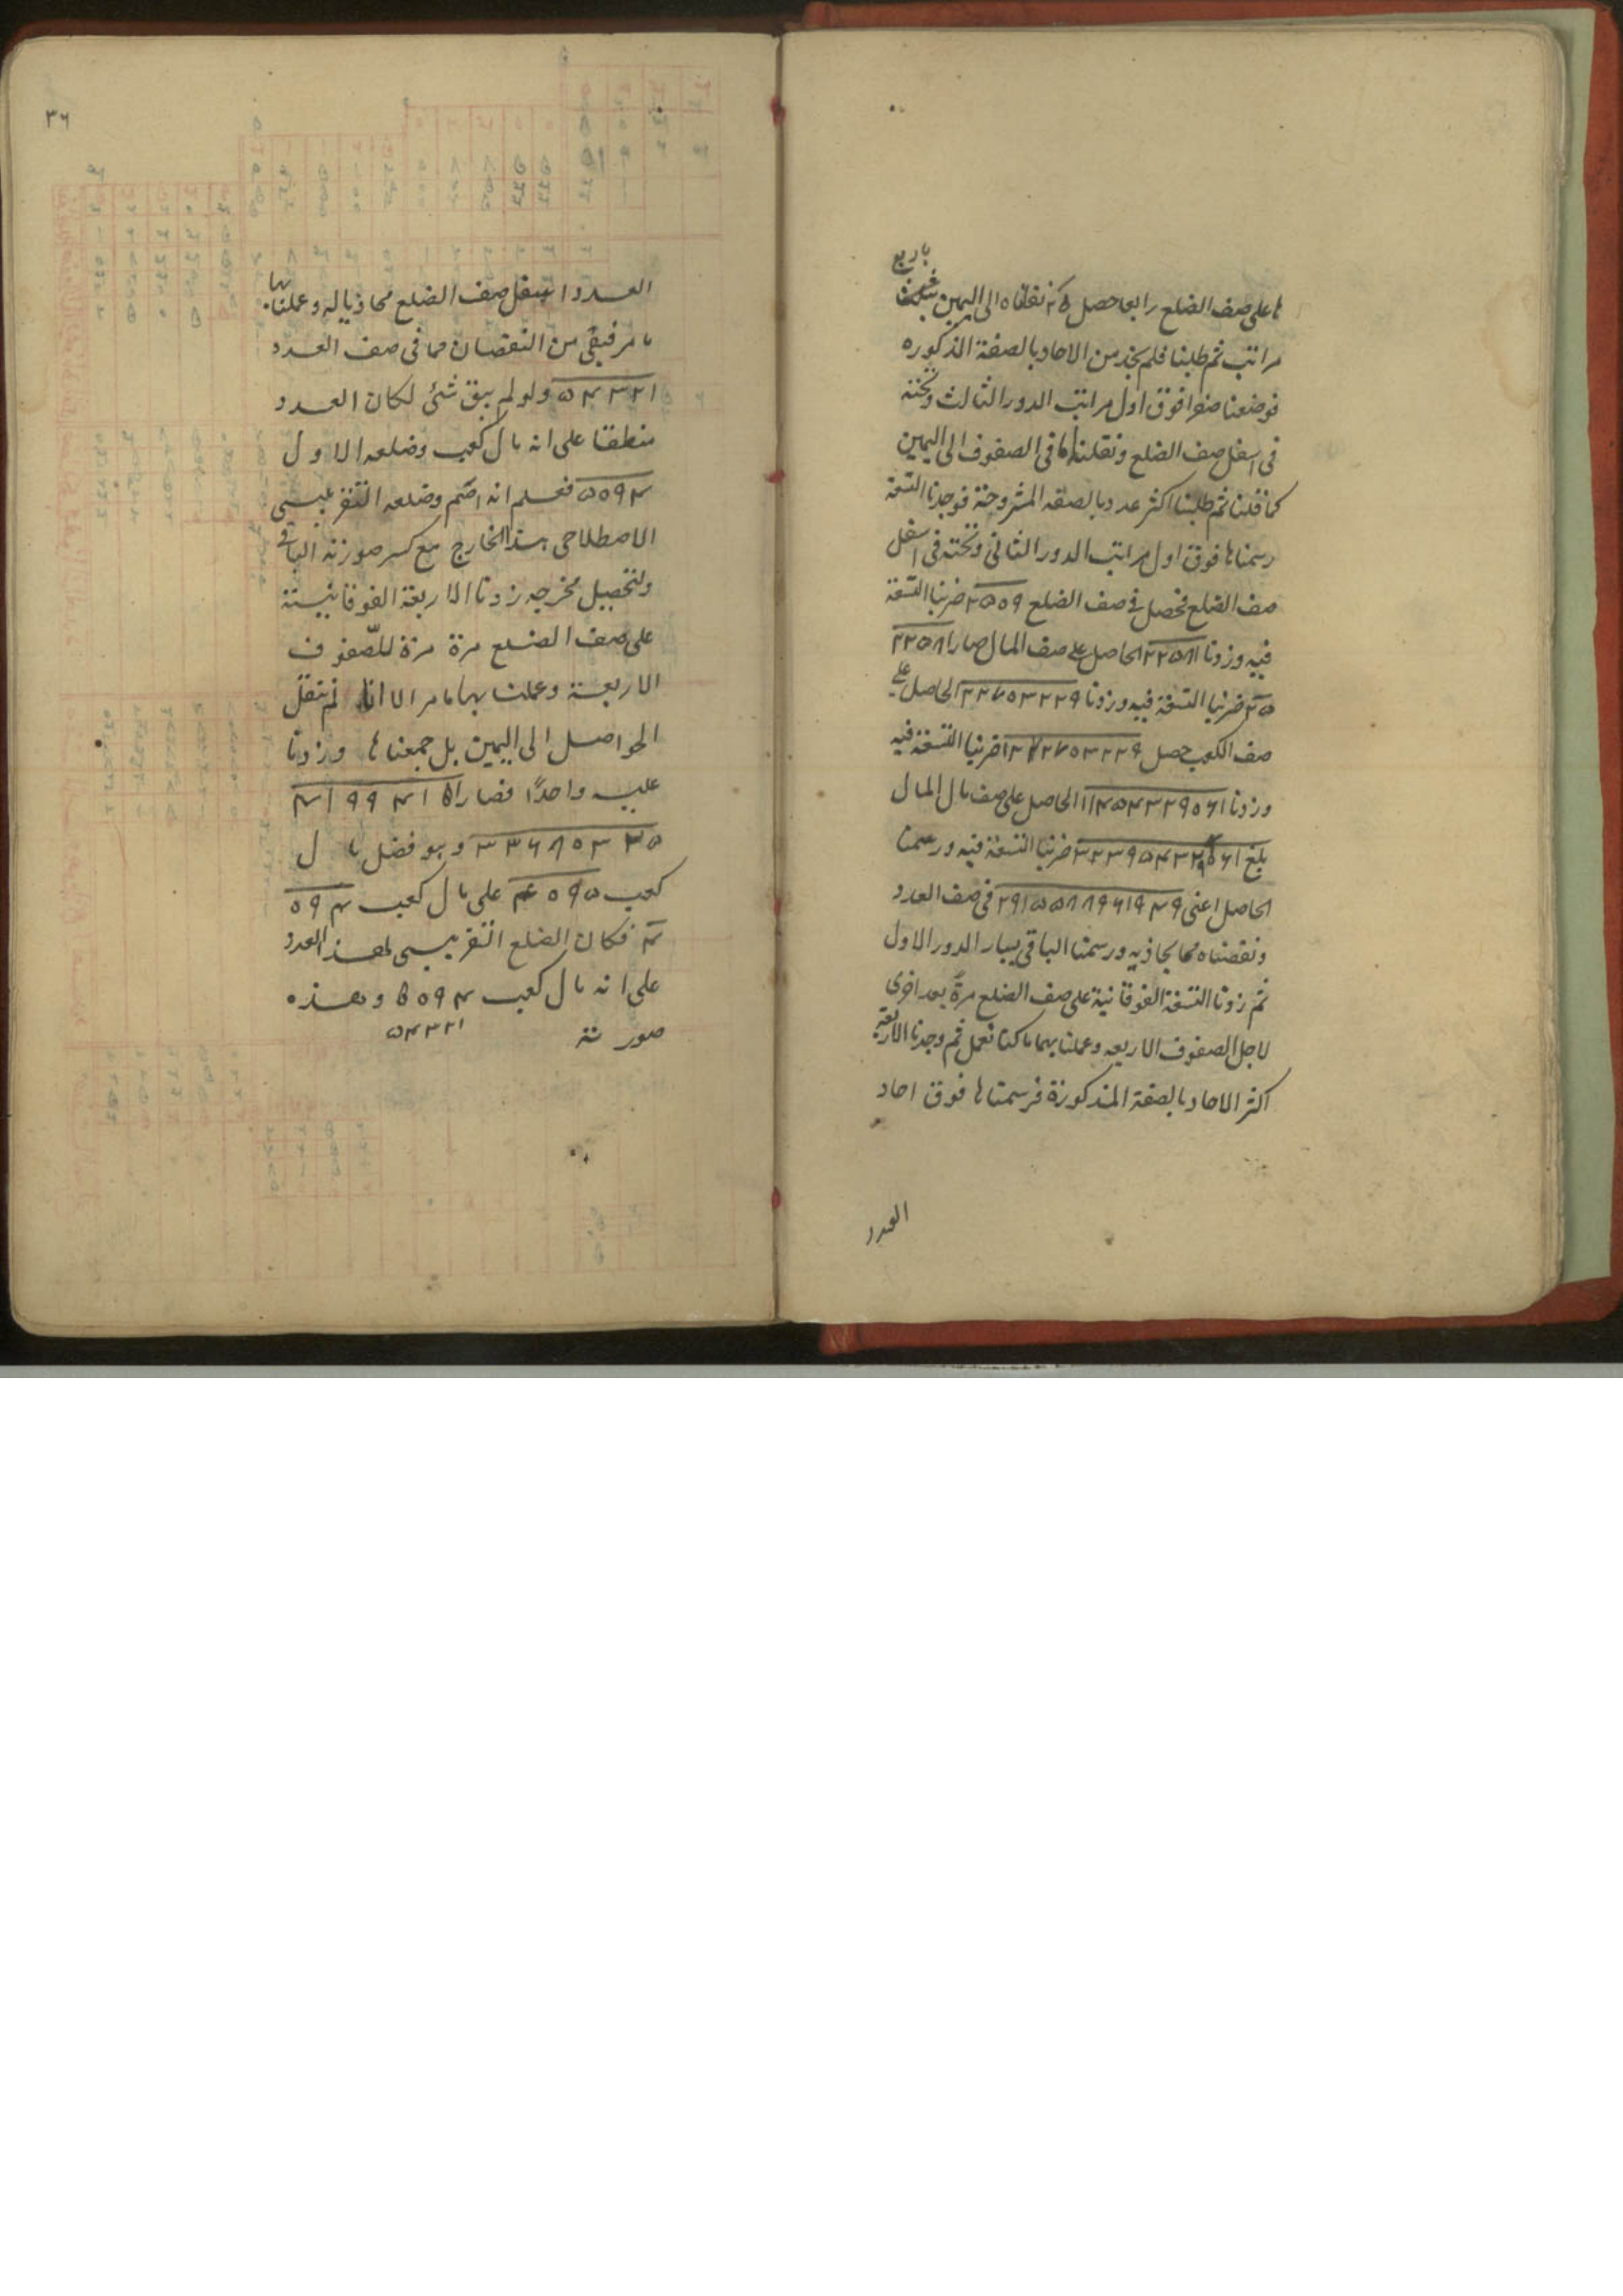 ها على صف الضلع رابعا حصل ٢٥ نقلناه الى اليمين بثلث
باربع
مراتب ثم طلبنا فلم نجد من الاحاد بالصفة المذكوره
فوضعنا صفرا فوق اول مراتب الدور الثالث وتحته
فى اسفل صف الضلع ونقلنا ما فى الصفوف الى اليمين
كما قلنا ثم طلبنا اكثر عدد بالصفه المشروحة فوجدنا التسعة
رسمناها فوق اول مراتب الدور الثانى وتحته فى اسفل
صف الضلع فحصل فى صف الضلع ٢٥٥٩ ضربنا التسعة
فيه وزدنا ٢٢٥٨١ الحاصل على صف المال صار ٢٢٥٨١
٢٥ ضربنا التسعة فيه وزدنا ٢٢٧٥٣٢٢٩ الحاصل على
صف الكعب حصل ١٢٧٢٧٥٣٢٢٩ ضربنا التسعة فيه
وزدنا ١١٤٥٤٣٢٩٥٦١ الحاصل على صف مال المال
بلغ ٣٢٣٩٥٤٣٢٩٥٦١ ضربنا التسعة فيه ورسمنا
الحاصل اعنى ٢٩١٥٥٨٨٩٦١٩٤٩ فى صف العدد
ونقصناه مما يحاذيه ورسمنا الباقى بيسار الدور الاول
ثم زدنا التسعة الفوقانية على صف الضلع مرة بعد اخرى
لاجل الصفوف الاربعه وعملنا بهما ما كنا نعمل ثم وجدنا الاربعة
اكثر الاحاد بالصفة المذكورة فرسمناها فوق احاد
العدد
٣٦
العدد واسفل صف الضلع محاذيا له وعملنا بها
ما مر فبقى من النقصان مما فى صف العدد
٥٤٣٢١ ولو لم يبق شئ لكان العدد
منطقا على انه مال كعب وضلعه الاول
٥٥٩٤ فعلم انه اصم وضلعه التقريبى
الاصطلاحى هذا الخارج مع كسر صورته الباقى
ولتحصيل مخرجه زدنا الاربعة الفوقانية
على صف الضلع مرة مرة للصفوف
الاربعة وعملنا بها ما مر الا انا لم ننقل
الحواصل الى اليمين بل جمعناها وزدنا
عليه واحدًا فصار ٤١٩٩٤١٥
٣٣٦٨٥٣٣٥ وهو فضل مال
كعب ٤٥٩٥ على مال كعب ٥٩٤
٤ فكان الضلع التقريبى لهذ العدد
على انه مال كعب ٥٥٩٤ وهذه
٥٤٣٢١
صورته